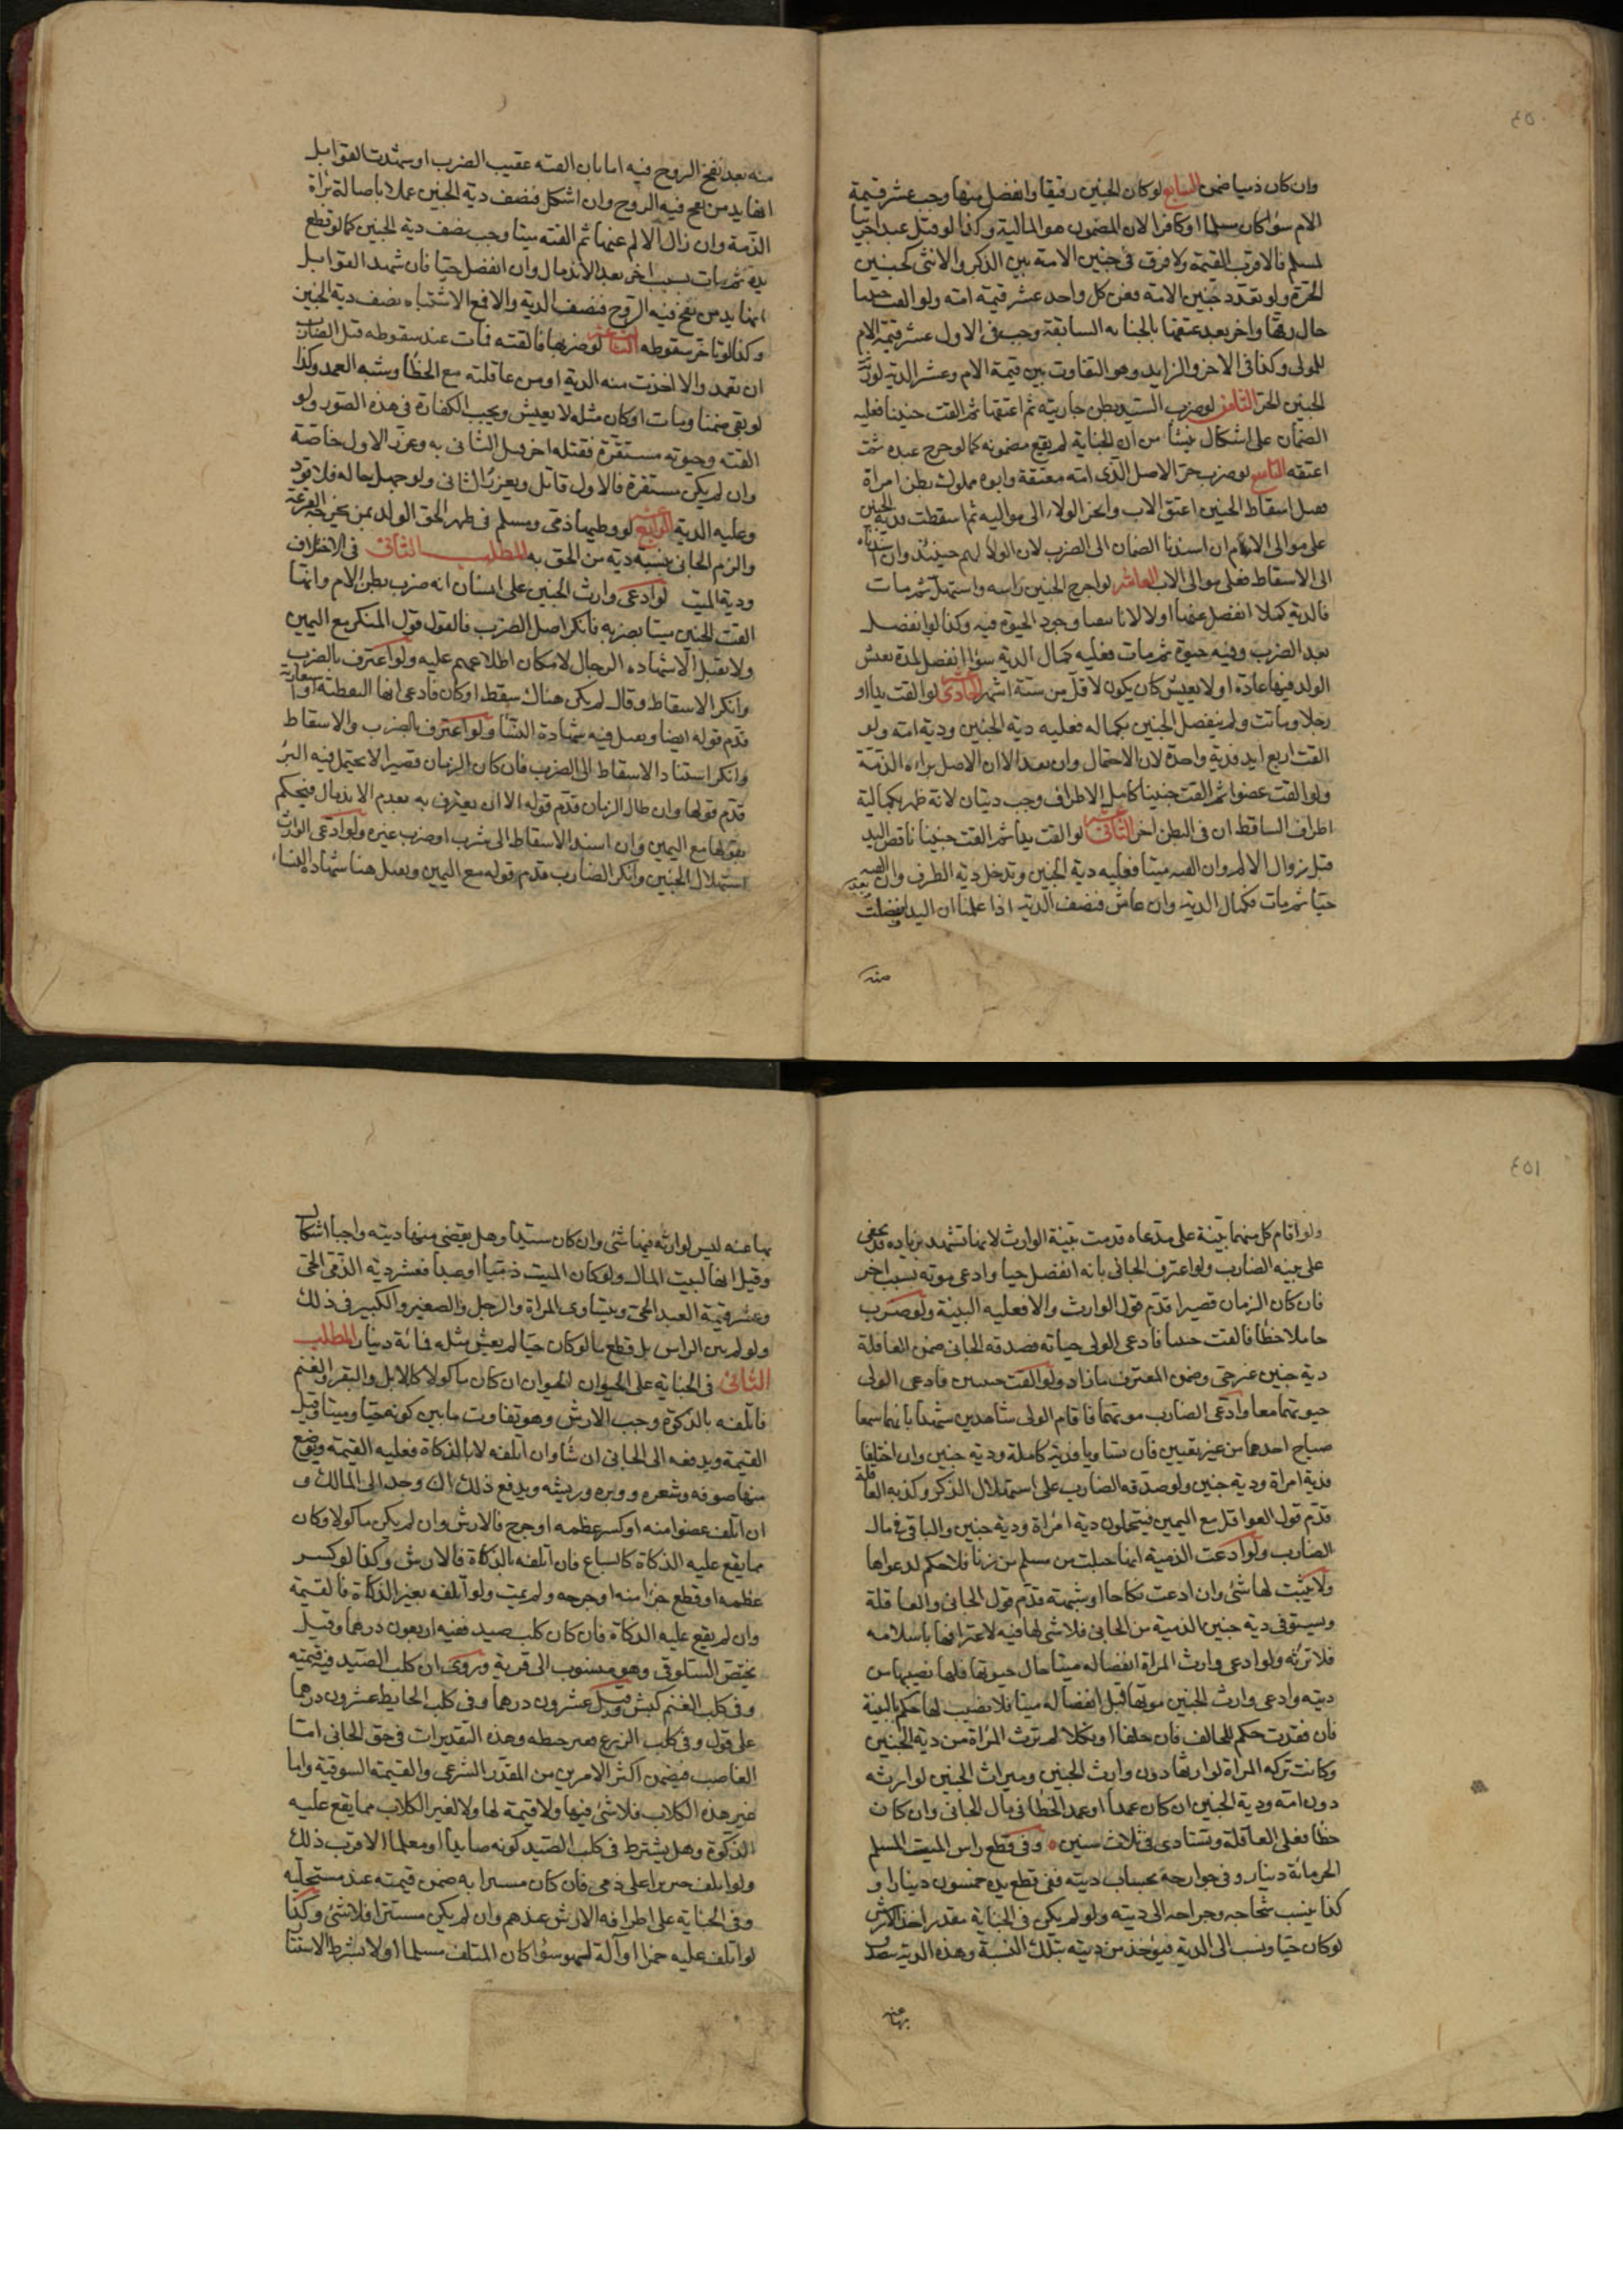 ٤٥٠
وان كان ذميا ضمن السابع لو كان الجنين رقيقا وانفصل منها وجب عشر قيمة
الام سواء كان مسلما او كافرا لان المضمون هو المالية وكذا لو قتل عبد اجنبيا
لمسلم فالاقرب القيمة ولا فرق فى جنين الامة بين الذكر والانثى كجنين
الحرة ولو تعدد جنين الامة ففى كل واحد عشر قيمة امه ولو القت جنينا
حال رقها واخر بعد عتقها بالجنايه السابقة وجب فى الاول عشر قيمة الام
للمولى وكذا فى الاخر والزايد وهو التفاوت بين قيمة الام وعشر الدية لورثة
الجنين الحر الثامن لو ضرب السيد بطن جاريته ثم اعتقها ثم القت جنينا فعليه
الضمان على اشكال ينشأ من ان الجناية لم يقع مضمونه كما لو جرح عبده ثم
اعتقه التاسع لو ضرب حر الاصل الذى امه معتقة وابوه مملوك بطن امراة
وقبل اسقاط الجنين اعتق الاب وانجر الولاء الى مواليه ثم اسقطت فدية الجنين
على موالى الام ان اسندنا الضمان الى الضرب لان الولاء لهم حينئذ وان اسندناه
الى الاسقاط فعلى موالى الاب العاشر لو اخرج الجنين راسه واستهل ثم مات
فالدية كملا انفصل عنها اولا لانا وجود الحيوة فيه وكذا لو انفصل
بعد الضرب وفيه حيوة ثم مات فعليه كمال الدية سواء انفصل لمدة يعيش
الولد فيها عادة او لا يعيش كان يكون لاقل من ستة اشهر الحادى عشر لو القت يدا او
رجلا وماتت ولم ينفصل الجنين بكماله فعليه دية الجنين ودية امه ولو
القت اربع ايد فدية واحدة لان الاحتمال وان بعد الا ان الاصل براءه الذمة
ولو القت عضوا ثم القت جنينا كامل الاطراف وجب ديتان لانه ظهر بكمالية
اطراف الساقط ان فى البطن اخر الثانى عشر لو القت يدا ثم القت جنينا ناقص اليد
قبل زوال الالم وان القته ميتا فعليه دية الجنين وتدخل دية الطرف وان القته
حيا ثم مات فكمال الدية وان عاش فنصف الدية اذا علمنا ان اليد انفصلت بعد
منه
منه بعد نفخ الروح فيه اما بان القته عقيب الضرب او شهدت القوابل
انها يد من نفخ فيه الروح وان اشكل فنصف دية الجنين عملا باصالة براة
الذمة وان زال الالم عنها ثم القته ميتا وجب نصف دية الجنين كما لو قطع
يده ثم مات بسبب اخر بعد الاندمال وان انفصل حيا فان شهد القوابل
انها يد من نفخ فيه الروح فنصف الدية والا فمع الاشتباه نصف دية الجنين
وكذا لو تاخر سقوطه الثالث عشر لو ضربها فالقته فمات عند سقوطه قتل الضارب
ان تعمد والا اخذت منه الدية او من عاقلته مع الخطأ وشبه العمد وكذا
لو بقى ضمنا ومات او كان مثله لا يعيش ويجب الكفارة فى هذه الصور ولو
القته وحيوته مستقرة فقتله اخر قتل الثانى به وعزر الاول خاصة
وان لم يكن مستقرة فالاول قاتل ويعزر الثانى ولو جهل حاله فلا قود
وعليه الدية الرابع عشر لو وطيها ذمى ومسلم فى طهر الحق الولد بمن يخرجه القرعة
والزم الجانى بنسبة دية من الحق به المطلب الثانى فى الاختلاف
ودية الميت لو ادعى وارث الجنين على انسان انه ضرب بطن الام وانها
القت الجنين ميتا بضربه فانكر اصل الضرب فالقول قول المنكر مع اليمين
ولا يقبل الا شهاده الرجال لامكان اطلاعهم عليه ولو اعترف بالضرب
وانكر الاسقاط وقال لم يكن هناك سقط او كان فادعى انها التقطته او استعارته
قدم قوله ايضا ويقبل فيه شهادة النساء ولو اعترف بالضرب والاسقاط
وانكر استناد الاسقاط الى الضرب فان كان الزمان قصيرا لا يحتمل فيه البرء
قدم قولها وان طال الزمان قدم قوله الا ان يعترف به بعدم الاندمال فيحكم
بقولها مع اليمين وان اسند الاسقاط الى شرب او ضرب غيره ولو ادعى الوارث
استهلال الجنين وانكر الضارب قدم قوله مع اليمين ويقبل هنا شهادة النساء
٤٥١
ولو اقام كل منهما بينة على مدعاه قدمت بينة الوارث لانها تشهد بزياده قد يخفى
على بينة الضارب ولو اعترف الجانى بانه انفصل حيا وادعى موته بسبب اخر
فان كان الزمان قصيرا قدم قول الوارث والا فعليه البينة ولو ضرب
حاملا خطأ فالقت جنينا فادعى الولى حياته فصدقه الجانى ضمن العاقلة
دية جنين غير حى وضمن المعترف مازاد ولو القت جنينين فادعى الولى
حيوتهما معا وادعى الضارب موتهما فاقام الولى شاهدين شهدا بانهما سمعا
صياح احدهما من غير تعيين فان تساويا فدية كاملة ودية جنين وان اختلفا
فدية امراة ودية جنين ولو صدقه الضارب على استهلال الذكر وكذبه العاقلة
قدم قول العواقل مع اليمين فيتحملون دية امراة ودية جنين والباقى فى مال
الضارب ولو ادعت الذمية انها حبلت من مسلم من زنا فلا حكم لدعواها
ولا يثبت لها شئ وان ادعت نكاحا او شبهة قدم قول الجانى والعاقلة
ويستوفى دية جنين الذمية من الجانى فلا شئ لها فيه لاعترافها باسلامه
فلا ترثه ولو ادعى وارث المراة انفصاله ميتا حال حيوتها فلها نصيبها من
ديته وادعى وارث الجنين موتها قبل انفصاله ميتا فلا نصيب لها حكم بالبينة
فان فقدت حكم للحالف فان حلفا او نكلا لم ترث المراة من دية الجنين
وكانت تركه المراة لوارثها دون وارث الجنين وميراث الجنين لوارثه
دون امه ودية الجنين ان كان عمدا او عمد الخطا فى مال الجانى وان كان
خطأ فعلى العاقلة وتستادى فى ثلاث سنين وفى قطع راس الميت المسلم
الحر مائة دينار وفى جوارحه بحساب ديته ففى قطع يده خمسون دينارا و
كذا ينسب شجاجه وجراحه الى ديته ولو لم يكن فى الجناية مقدر اخذ الارش
لو كان حيا ونسب الى الدية فيؤخذ من ديته بتلك النسبة وهذه الدية يتصدق
بها عنه
بها عنه ليس لوارثه فيها شئ وان كان سيدا وهل يقضى منها ديته واجبا اشكال
وقيل انها لبيت المال ولو كان الميت ذميا او عبدا فعشر دية الذمى الحى
وعشر قيمة العبد الحى ويتساوى المراة والرجل والصغير والكبير فى ذلك
ولو لم يبن الراس بل قطع ما لو كان حيا لم يعش مثله فمائة دينار المطلب
الثانى فى الجناية على الحيوان الحيوان ان كان ماكولا كالابل والبقر والغنم
فاتلفه بالذكوة وجب الارش وهو تفاوت ما بين كونه حيا وميتا وقيل
القيمة ويدفعه الى الجانى ان شاء وان اتلفه لا بالذكاة فعليه القيمة ويوضع
منها صوفه وشعره ووبره وريشه ويدفع ذلك ان وجد الى المالك و
ان اتلف عضوا منه او كسر عظمه او جرح فالارش وان لم يكن ماكولا وكان
مما يقع عليه الذكاة كالسباع فان اتلفه بالذكاة فالارش وكذا لو كسر
عظمه او قطع جزا منه او جرحه ولم يمت ولو اتلفه بغير الذكاة فالقيمة
وان لم يقع عليه الذكاة فان كان كلب صيد ففيه اربعون درهما وقيل
يختص السلوقى وهو منسوب الى قرية وروى ان كلب الصيد فيه قيمته
وفى كلب الغنم كبش وقيل عشرون درهما وفى كلب الحايط عشرون درهما
على قول وفى كلب الزرع قفيز حنطه وهذه التقديرات فى حق الجانى اما
الغاصب فيضمن اكثر الامرين من المقدر الشرعى والقيمة السوقية واما
غير هذه الكلاب فلا شئ فيها ولا قيمة لها ولا لغير الكلاب مما يقع عليه
الذكوة وهل يشترط فى كلب الصيد كونه صايدا او معلما الاقرب ذلك
ولو اتلف خنزيرا على ذمى فان كان مستترا به ضمن قيمته عند مستحليه
وفى الجناية على اطرافه الارش عندهم وان لم يكن مستترا فلا شئ وكذا
لو اتلف عليه خمرا او آلة لهو سواء كان المتلف مسلما او لا بشرط الاستتا